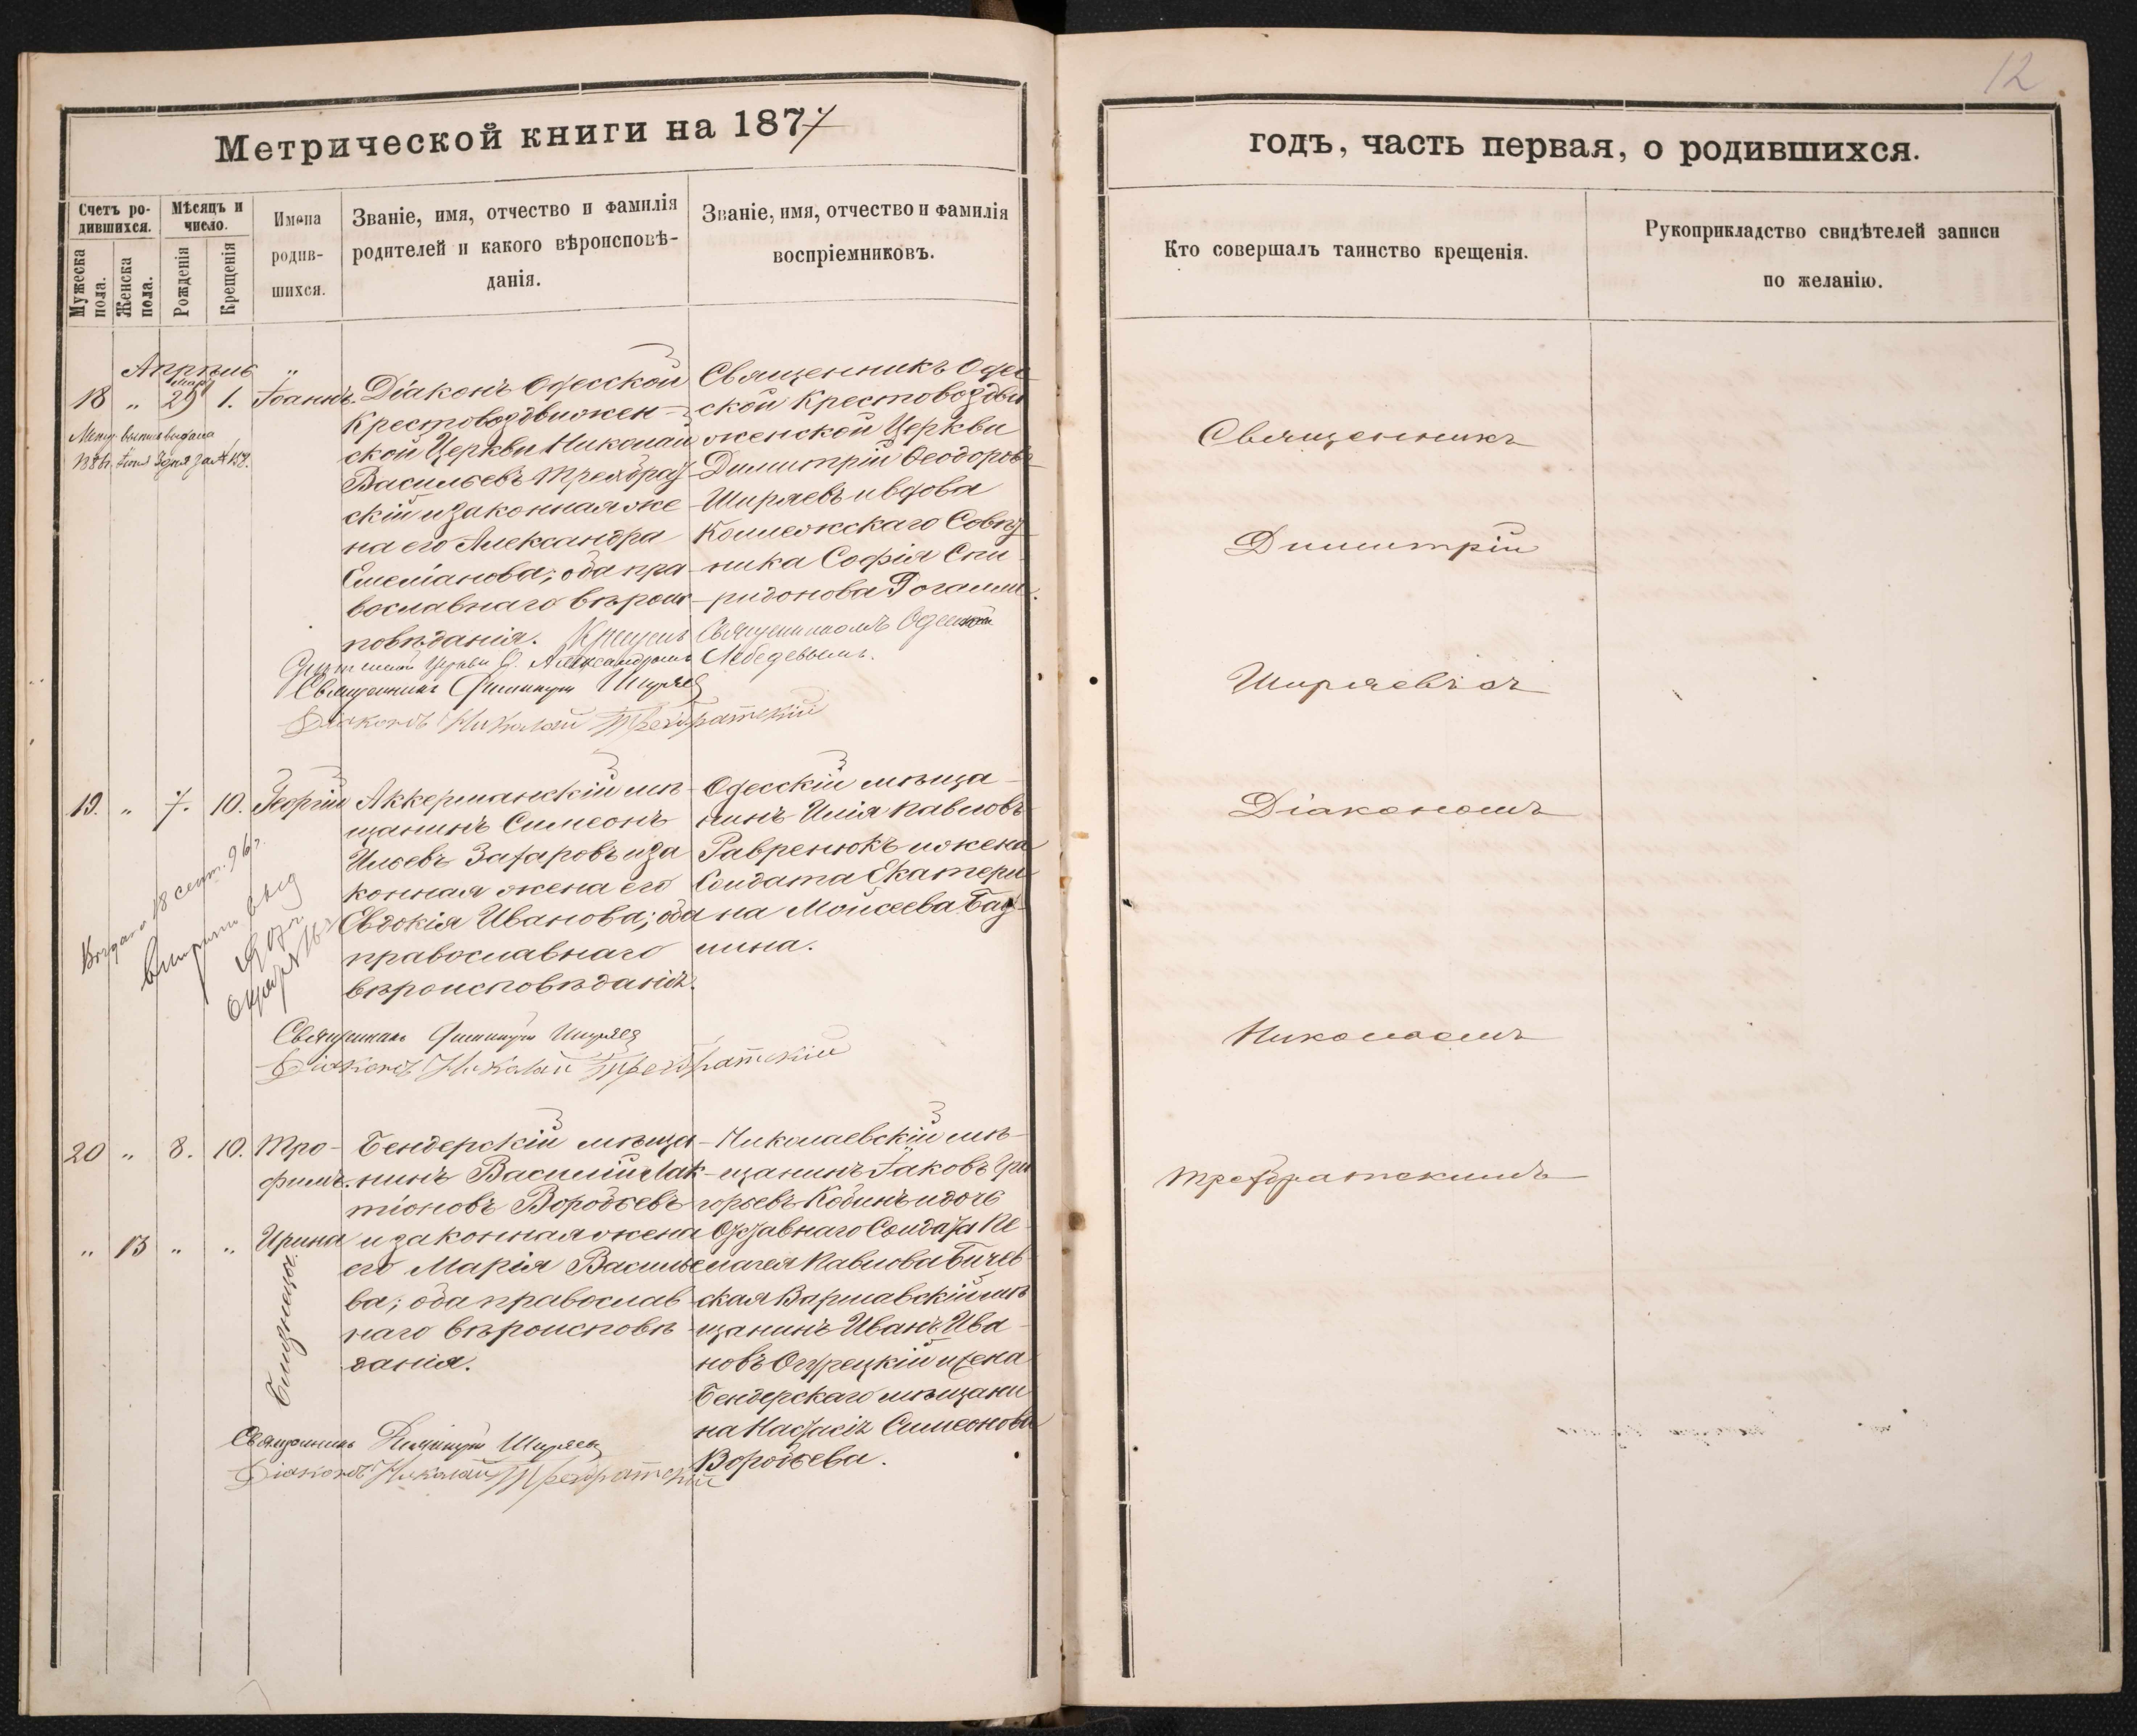 12
Метрической книги на 1877
годъ, часть первая, о родившихся.
Счетъ ро-
дившихся.
Мужеска
пола.
Женска
пола.
Мѣсяцъ и
число.
Рожденія
Крещенія
Имена
родив-
шихся.
Званіе, имя, отчество и фамилія
родителей и какого вѣроисповѣ-
данія.
Званіе, имя, отчество и фамилія
воспріемниковъ.
Кто совершалъ таинство крещенія.
Рукоприкладство свидѣтелей записи
по желанію.
Апрѣль
18 „ 29 1. Іоаннъ.
Діаконъ Одесской
Крестовоздвижен-
ской Церкви Николай
Васильевъ Трехбрат
скій и законная же
на его Александра
Емеліанова; оба пра
вославнаго вѣроис
повѣданія.
Священникъ Одес
ской Крестовоздви
женской Церкви
Димитрій Ѳеодоровъ
Ширяевъ и вдова
Коллежскаго Совѣт
ника Софія Спи
ридонова
Крещенъ Священникомъ Одесской
Церкви Александромъ Лебедевымъ.
Священникъ Димитрій Ширяев
Діаконъ Николай Трехбратскій
19. „ 7. 10. Георгій
Аккерманскій мѣ
щанинъ Симеонъ
Ильевъ Захаровъ и за
конная жена его
Евдокія Иванова; оба
православнаго
вѣроисповѣданія.
Одесскій мѣща
нинъ Илія Павловъ
Гавренюкъ и жена
Солдата Екатери
на Моисеева
лина.
Выдано 18 сент. 96 г.
Священникъ Димитрій Ширяев
Діаконъ Николай Трехбратскій
20 „ 8. 10. Тро-
фимъ.
„ 13 „ „ Ирина
Близнецы
Бендерскій мѣща
нинъ Василій Лак
тіоновъ Воробьевъ
и законная жена
его Марія Василье
ва; оба православ
наго вѣроисповѣ
данія.
Николаевскій мѣ
щанинъ Іаковъ Гри
горьевъ Кобинъ и дочь
Отставнаго Солдата Пе
лагея Павлова Бичев
ская Варшавскій мѣ
щанинъ Иванъ Ива
новъ и жена
Бендерскаго мѣщани
на Настасія Симеонова
Воробьева.
Священникъ Димитрій Ширяевъ
Діаконъ Николай Трехбратскій
Священникъ
Димитрій
Ширяевъ съ
Діакономъ
Николаемъ
Трехбратскимъ